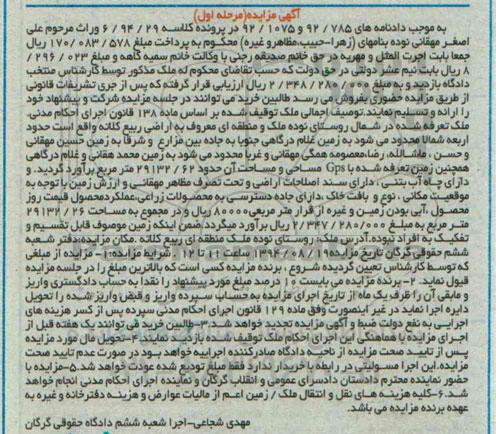 آگهی مزایده(مرحله اول)
به موجب دادنامه های 785 / 92 و 1075 / 92 در پرونده کلاسه 29 / 94 / 6 وراث مرحوم علی
اصغر مهقانی نوده بنامهای (زهرا-حبیب،مظاهرو غیره) محکوم به پرداخت مبلغ 578 / 083 / 170 ریال
جمعا بابت اجرت المثل و مهریه در حق خانم صدیقه رجنی با وکالت خانم سمیه گاهه و مبلغ 023 / 296 /
8 ریال بابت نیم عشر دولتی در حق دولت که حسب تقاضای محکوم له ملک مذکور توسط کارشناس منتخب
دادگاه بازدید و به مبلغ 000 / 280 / 348 / 2 ریال ارزیابی قرار گرفته که پس از جری تشریفات قانونی
از طریق مزایده حضوری بفروش می رسد طالبین خرید می توانند در جلسه مزایده شرکت و پیشنهاد خود
را ارائه و تسلیم نمایند.توصیف اجمالی ملک توقیف شده بر اساس ماده 138 قانون اجرای احکام مدنی.
ملک تعرفه شده در شمال روستای نوده ملک و منطقه ای معروف به اراضی ربیع کلاته واقع است حدود
اربعه شمالا محدود می شود به زمین غلام درگاهی جنوبا به جاده بین مزارع و شرقا به زمین حسین مهقانی
و حسن ، ماشاالله، رضا،معصومه همگی مهقانی و غربا محدود می شود به زمین محمد هقانی و غلام درگاهی
همچنین زمین تعرفه شده با Gps مساحی و مساحت آن حدود 62 / 29132 متر مربع برآورد گردید. و
دارای چاه آب بتنی ، دارای سند اصلاحات اراضی و تحت تصرف مظاهر مهقانی و ارزش زمین با توجه به
موقعیت مکانی ، نوع و بافت خاک ،دارای جاده دسترسی به محصولات زراعی،عملکردمحصول قیمت روز
محصول ،آبی بودن زمین و غیره از قرار متر مربعی80000 ریال و در مجموع به مساحت 26 / 29132
متر مربع به مبلغ 000 / 280 / 347 / 2 ریال برآورد میگردد.ضمن اینکه زمین موصوف قابل تقسیم و
تفکیک به افراد نبوده.آدرس ملک: روستای نوده ملک منطقه ای ربیع کلاته .مکان مزایده:دفتر شعبه
ششم حقوقی گرگان تاریخ مزایده 1394/08/19 ساعت 11 تا 12 . شرایط مزایده: 1- مزایده از مبلغی
که توسط کارشناس تعیین گردیده شروع ، برنده مزایده کسی است که بالاترین مبلغ را در جلسه مزایده
قبول نماید. 2- برنده مزایده می بایست 10 درصد مبلغ مورد پیشنهاد را نقدا به حساب دادگستری واریز
و مابقی آن را ظرف یک ماه از تاریخ اجرای مزایده به حساب سپرده واریز و قبض واریز شده را تحویل
دایره اجرا نماید در غیر اینصورت وفق ماده 129 قانون اجرای احکام مدنی سپرده پس از کسر هزینه های
اجرایی به نفع دولت ضبط و آگهی مزایده تجدید خواهد شد.3-طالبین خرید می توانند یک هفته قبل از
اجرای مزایده با هماهنگی این اجرای احکام ملک توقیف شده بازدید نمایند.4-تحویل مال مورد مزایده
پس از تایید صحت مزایده از ناحیه دادگاه صادرکننده اجراییه خواهد بود در صورت عدم تایید صحت
مزایده.این اجرا مسولیتی در رابطه با خریدار ندارد فقط مبلغ تودیع شده عودت خواهد شد.5-مزایده با
حضور نماینده محترم دادستان دادسرای عمومی و انقلاب گرگان و نماینده اجرای احکام مدنی انجام خواهد
شد.6-کلیه هزینه های نقل و انتقال ملک / زمین اعم از مالیات عوارض و هزینه دفترخانه و غیره به
عهده برنده مزایده می باشد.
مهدی شجاعی-اجرا شعبه ششم دادگاه حقوقی گرگان